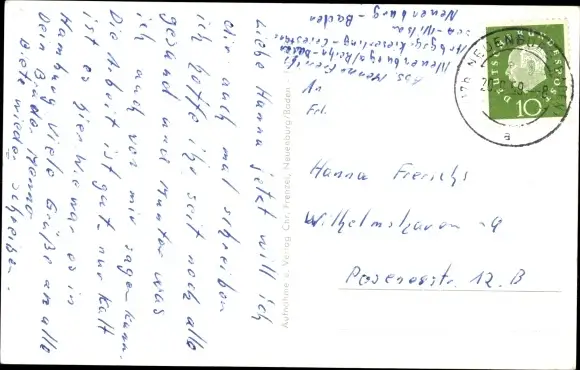 Liebe Hanna jetzt will ich
dir auch mal schreiben
ich hoffe ihr seit noch alle
gesund und munter was
ich auch von mir sagen kann.
Die Arbeit ist gut nur kalt
ist es hier. Wie war es in
Hamburg. Viele Grüße an alle
Dein Bruder Menno
Bitte wieder schreiben.
Abs. Menno Frerichs
Neuenburg/a/Rhein-Baden
Neuenburg - Baden
Aufnahme u. Verlag Chr. Frenzel, Neuenburg/Baden
DEUTSCHE BUNDESPOST
10
NEUENBURG
a
An
Frl.
Hanna Frerichs
Wilhelmshaven
Posenerstr. 12. B